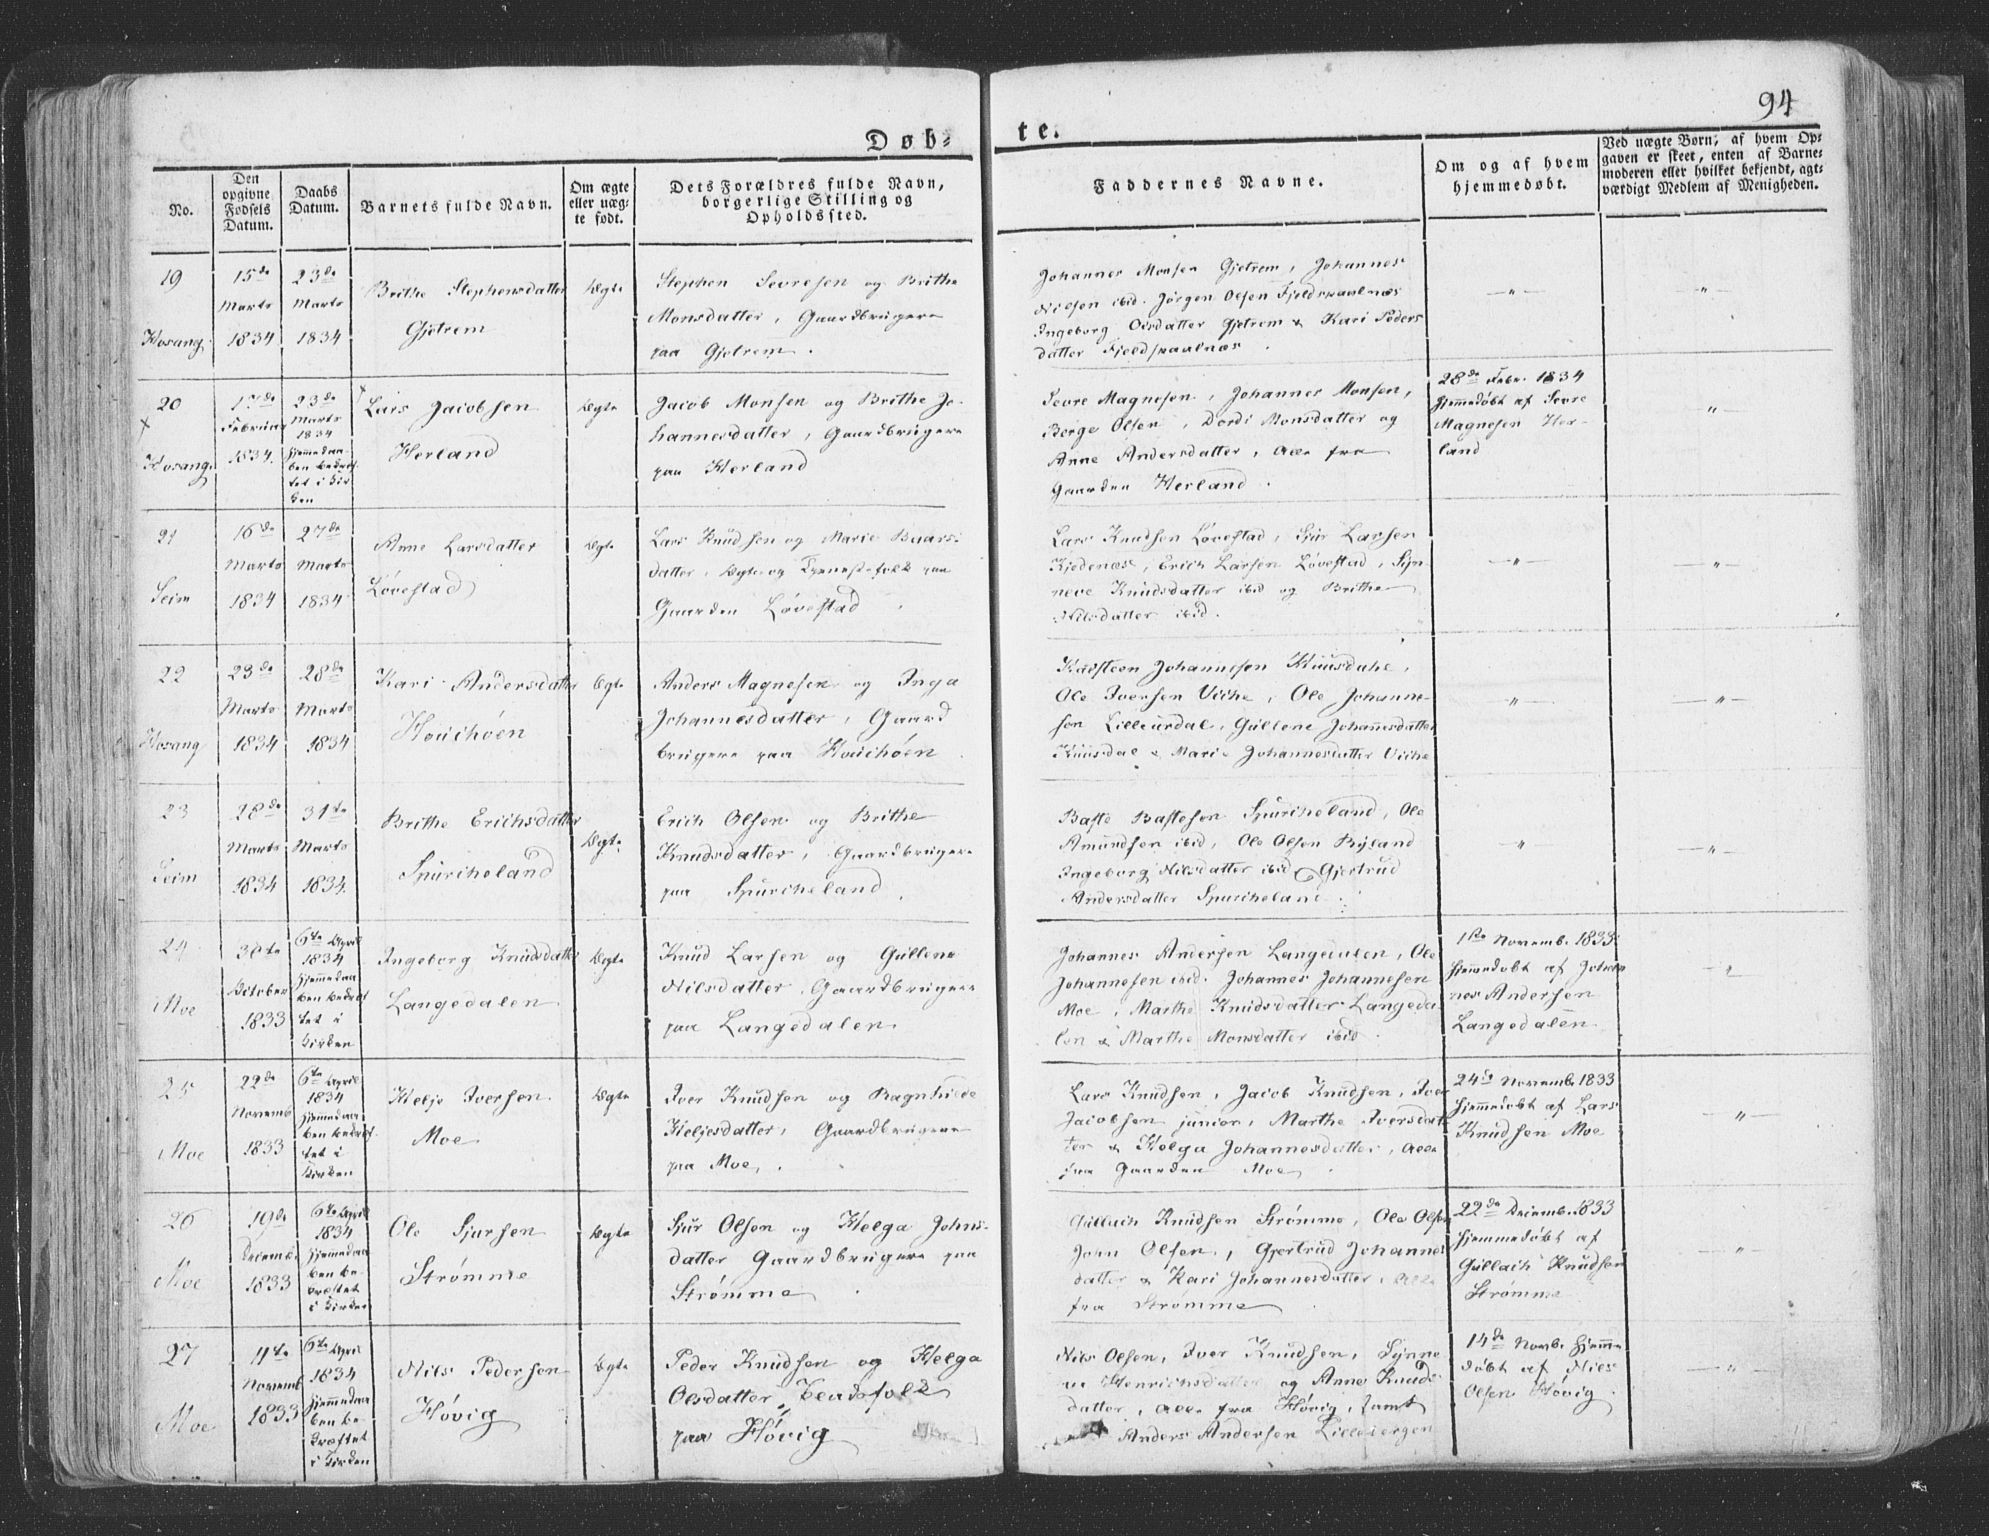 94
Døb-
te.
No.
Den
opgivne
Fødsels
Datum.
Daabs
Datum.
Barnets fulde Navn.
Om ægte
eller uæg-
te født.
Dets Forældres fulde Navn,
borgerlige Stilling og
Opholdssted.
Faddernes Navne.
Om og af hvem
hjemmedøbt.
Ved uægte Børn, af hvem Op-
gaven er skeet, enten af Barne-
moderen eller hvilket bekjendt, agt-
værdigt Medlem af Menigheden.
19
Hosang
15de
Marts
1834
23de
Marts
1834
Brithe Stephensdatter
Gjetrem
Ægte
Stephen Sevresen og Brithe
Monsdatter, Gaardbrugere
paa Gjetrem.
Johannes Monsen Gjetrem, Johannes
Nilsen ibid. Jørgen Olsen Fjeldskaalnæs
Ingeborg Olsdatter Gjetrem & Kari Peders
datter Fjeldskaalnæs.
—"—
—"—
20
Hosang
17de
Februar
1834
23de
Marts
1834
hjemmedaa-
ben bekræf-
tet i Kir
ken
Lars Jacobsen
Herland
Ægte
Jacob Monsen og Brithe Jo-
hannesdatter, Gaardbrugere
paa Herland
Sevre Magnesen, Johannes Monsen,
Berge Olsen, Dordi Monsdatter og
Anne Andersdatter, alle fra
Gaarden Herland.
28de Febr. 1834
hjemmedøbt af Sevre
Magnesen Her-
land
—"—
21
Seim
16de
Marts
1834
27de
Marts
1834
Anne Larsdatter
Løvestad
Ægte
Lars Knudsen og Marie Baars-
datter, Ægte og Tjenestefolk paa
Gaarden Løvestad.
Lars Knudsen Løvestad, Sjur Larsen
Kjedenæs, Erich Larsen Løvestad, Syn-
neve Knudsdatter ibid og Brithe
Nilsdatter ibid.
—"—
—"—
22
Hosang
23de
Marts
1834
28de
Marts
1834
Kari Andersdatter
Houchøen
Ægte
Anders Magnesen og Inga
Johannesdatter, Gaard
brugere paa Houchøen
Johannesen Kuusdahe,
Ole Iversen Uche, Ole Johanne-
sen Lilleurdal, Gullene Johannesdatter
Kuusdal & Marie Johannesdatter Uche
—"—
—"—
23
Seim
28de
Marts
1834
31te
Marts
1834
Brithe Erichsdatter
Spurcheland
Ægte
Erich Olsen og Brithe
Knudsdatter, Gaardbrugere
paa Spurcheland.
Baste Bastesen Spurcheland, Ole
Amundsen ibid, Ole Olsen Ryland
Ingeborg Nilsdatter ibid & Gjertrud
Andersdatter Spurcheland.
—"—
—"—
24
Moe
30te
October
1833
6te April
1834
hjemmedaa
ben bekræf
tet i
Kirken
Ingeborg Knudsdatter
Langedalen
Ægte
Knud Larsen og Gullene
Nilsdatter, Gaardbrugere
paa Langedalen
Johannes Andersen Langedalen, Ole
Johannesen ibid. Johannes Johannesen
Moe, Marthe Knudsdatter Langeda-
len & Marthe Monsdatter ibid.
1ste Novemb. 1833
hjemmedøbt af Johan
nes Andersen
Langedalen
—"—
25
Moe
22de
Novemb
1833
6te April
1834
hjemmedaa
ben bekræf-
tet i
Kirken
Helje Iversen
Moe
Ægte
Iver Knudsen og Ragnhilde
Heljesdatter, Gaardbrugere
paa Moe.
Lars Knudsen, Jacob Knudsen, Iver
Jacobsen junior, Marthe Iversdat
ter & Helga Johannesdatter, alle
fra Gaarden Moe.
24de Novemb 1833
hjemmedøbt af Lars
Knudsen Moe
—"—
26
Moe
19de
Decemb.
1833
6te April
1834
hjemmedaa
ben be-
kræftet
i Kirken
Ole Sjursen
Strømme
Ægte
Sjur Olsen og Helga Johns-
datter Gaardbrugere paa
Strømme.
Gullach Knudsen Strømme, Ole Olsen
John Olsen, Gjertrud Johannes
datter & Kari Johannesdatter, alle
fra Strømme.
22de Decemb. 1833
hjemmedøbt af
Gullach Knudsen
Strømme
—"—
27
Moe
11te
Novemb
1833
6te April
1834
hjemmedaa
ben be-
kræftet
i Kirken
Nils Pedersen
Høvig
Ægte
Peder Knudsen og Helga
Olsdatter,
paa Høvig
Nils Olsen, Iver Knudsen, Synne
ve Henrichsdatter og Anne Knuds-
datter, alle fra Høvig, samt
Anders Andersen
14de Novb. hjemme
døbt af Niels
Olsen Høvig.
—"—